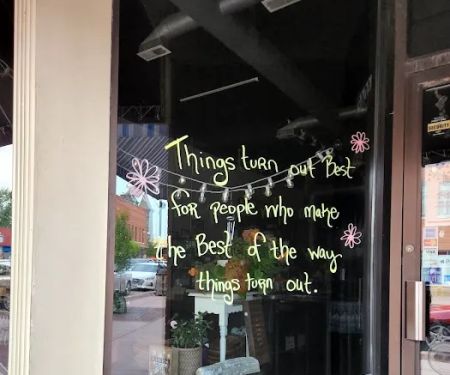 Things turn out Best
for people who make
the Best of the way
things turn out.
SECURITY